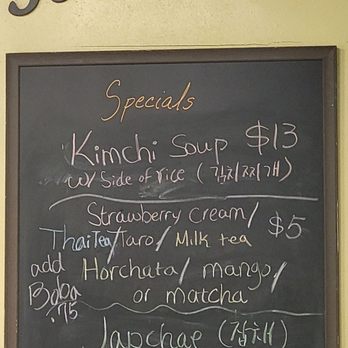 Specials
Kimchi Soup $13
w/ Side of rice (김치찌개)
Strawberry Cream/
Thai Tea/Taro/ Milk tea $5
add Horchata/ mango/
Boba or matcha
.75
Japchae (잡채)